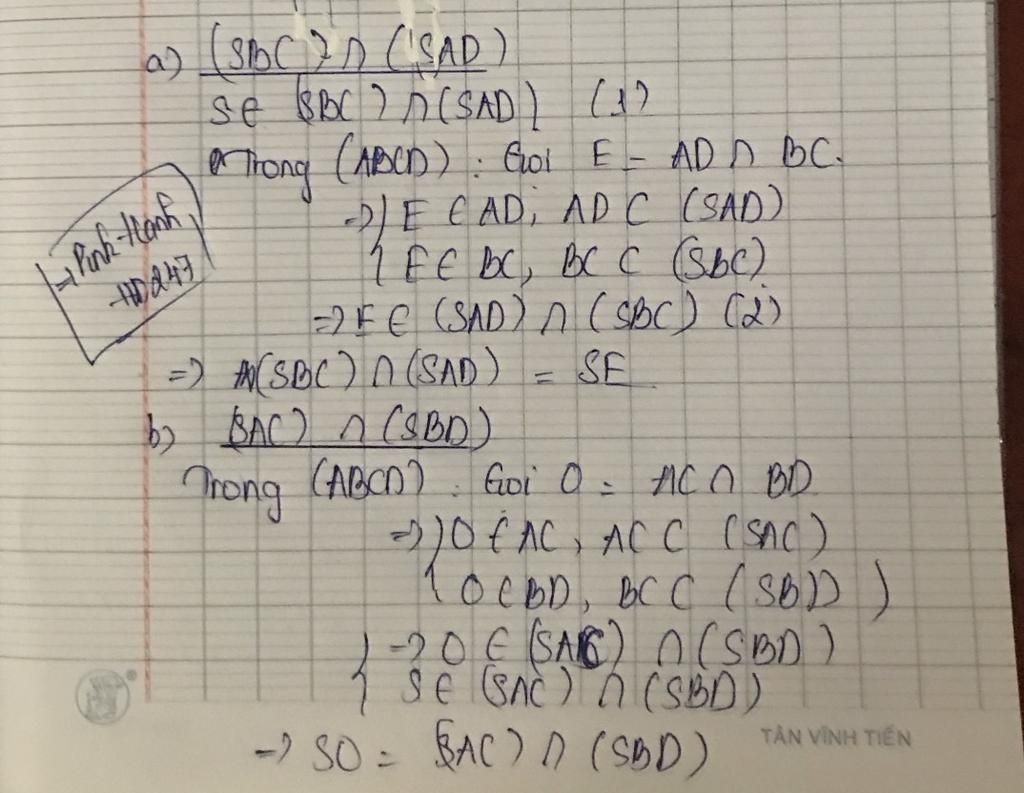 a) (SBC) ∩ (SAD)
S ∈ (SBC) ∩ (SAD) (1)
Trong (ABCD): Gọi E = AD ∩ BC.
=> { E ∈ AD, AD ⊂ (SAD)
E ∈ BC, BC ⊂ (SBC)
=> E ∈ (SAD) ∩ (SBC) (2)
=> (SBC) ∩ (SAD) = SE
-HD247
b) (SAC) ∩ (SBD)
Trong (ABCD): Gọi O = AC ∩ BD
=> { O ∈ AC, AC ⊂ (SAC)
O ∈ BD, BC ⊂ (SBD)
{ => O ∈ (SAC) ∩ (SBD)
S ∈ (SAC) ∩ (SBD)
=> SO = (SAC) ∩ (SBD)
TÂN VĨNH TIẾN